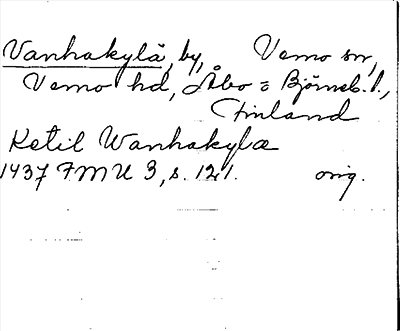 Vanhakylä, by, Vemo sn,
Vemo hd, Åbo = Björneb. l.,
Finland
Ketil Wanhakylæ
1437 FMU 3, s. 121. orig.